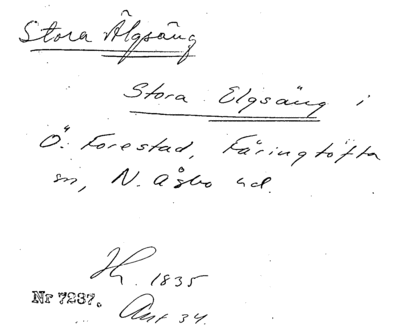 Stora Älgsäng
Stora Elgsäng i
Ö. Forestad, Färingtofta
sn, N. Åsbo hd.
1835
Nr 7287. Ant 34.